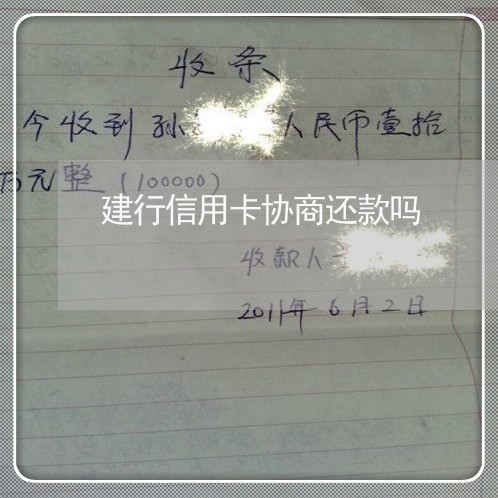 收条
今收到孙 人民币壹拾
万元整(100000)
建行信用卡协商还款吗
收款人
2011年6月2日